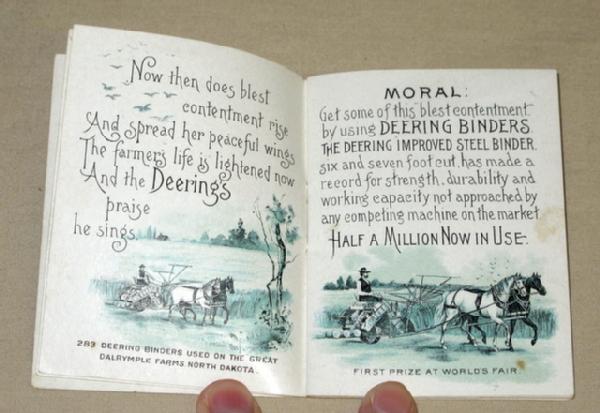 Now then does blest
contentment rise
And spread her peaceful wings
The farmer's life is lightened now
And the Deering's
praise
he sings.
283 DEERING BINDERS USED ON THE GREAT
DALRYMPLE FARMS NORTH DAKOTA.
MORAL:
Get some of this blest contentment
by using DEERING BINDERS.
THE DEERING IMPROVED STEEL BINDER.
six and seven foot cut, has made a
record for strength, durability and
working capacity not approached by
any competing machine on the market
HALF A MILLION NOW IN USE.
FIRST PRIZE AT WORLD'S FAIR.